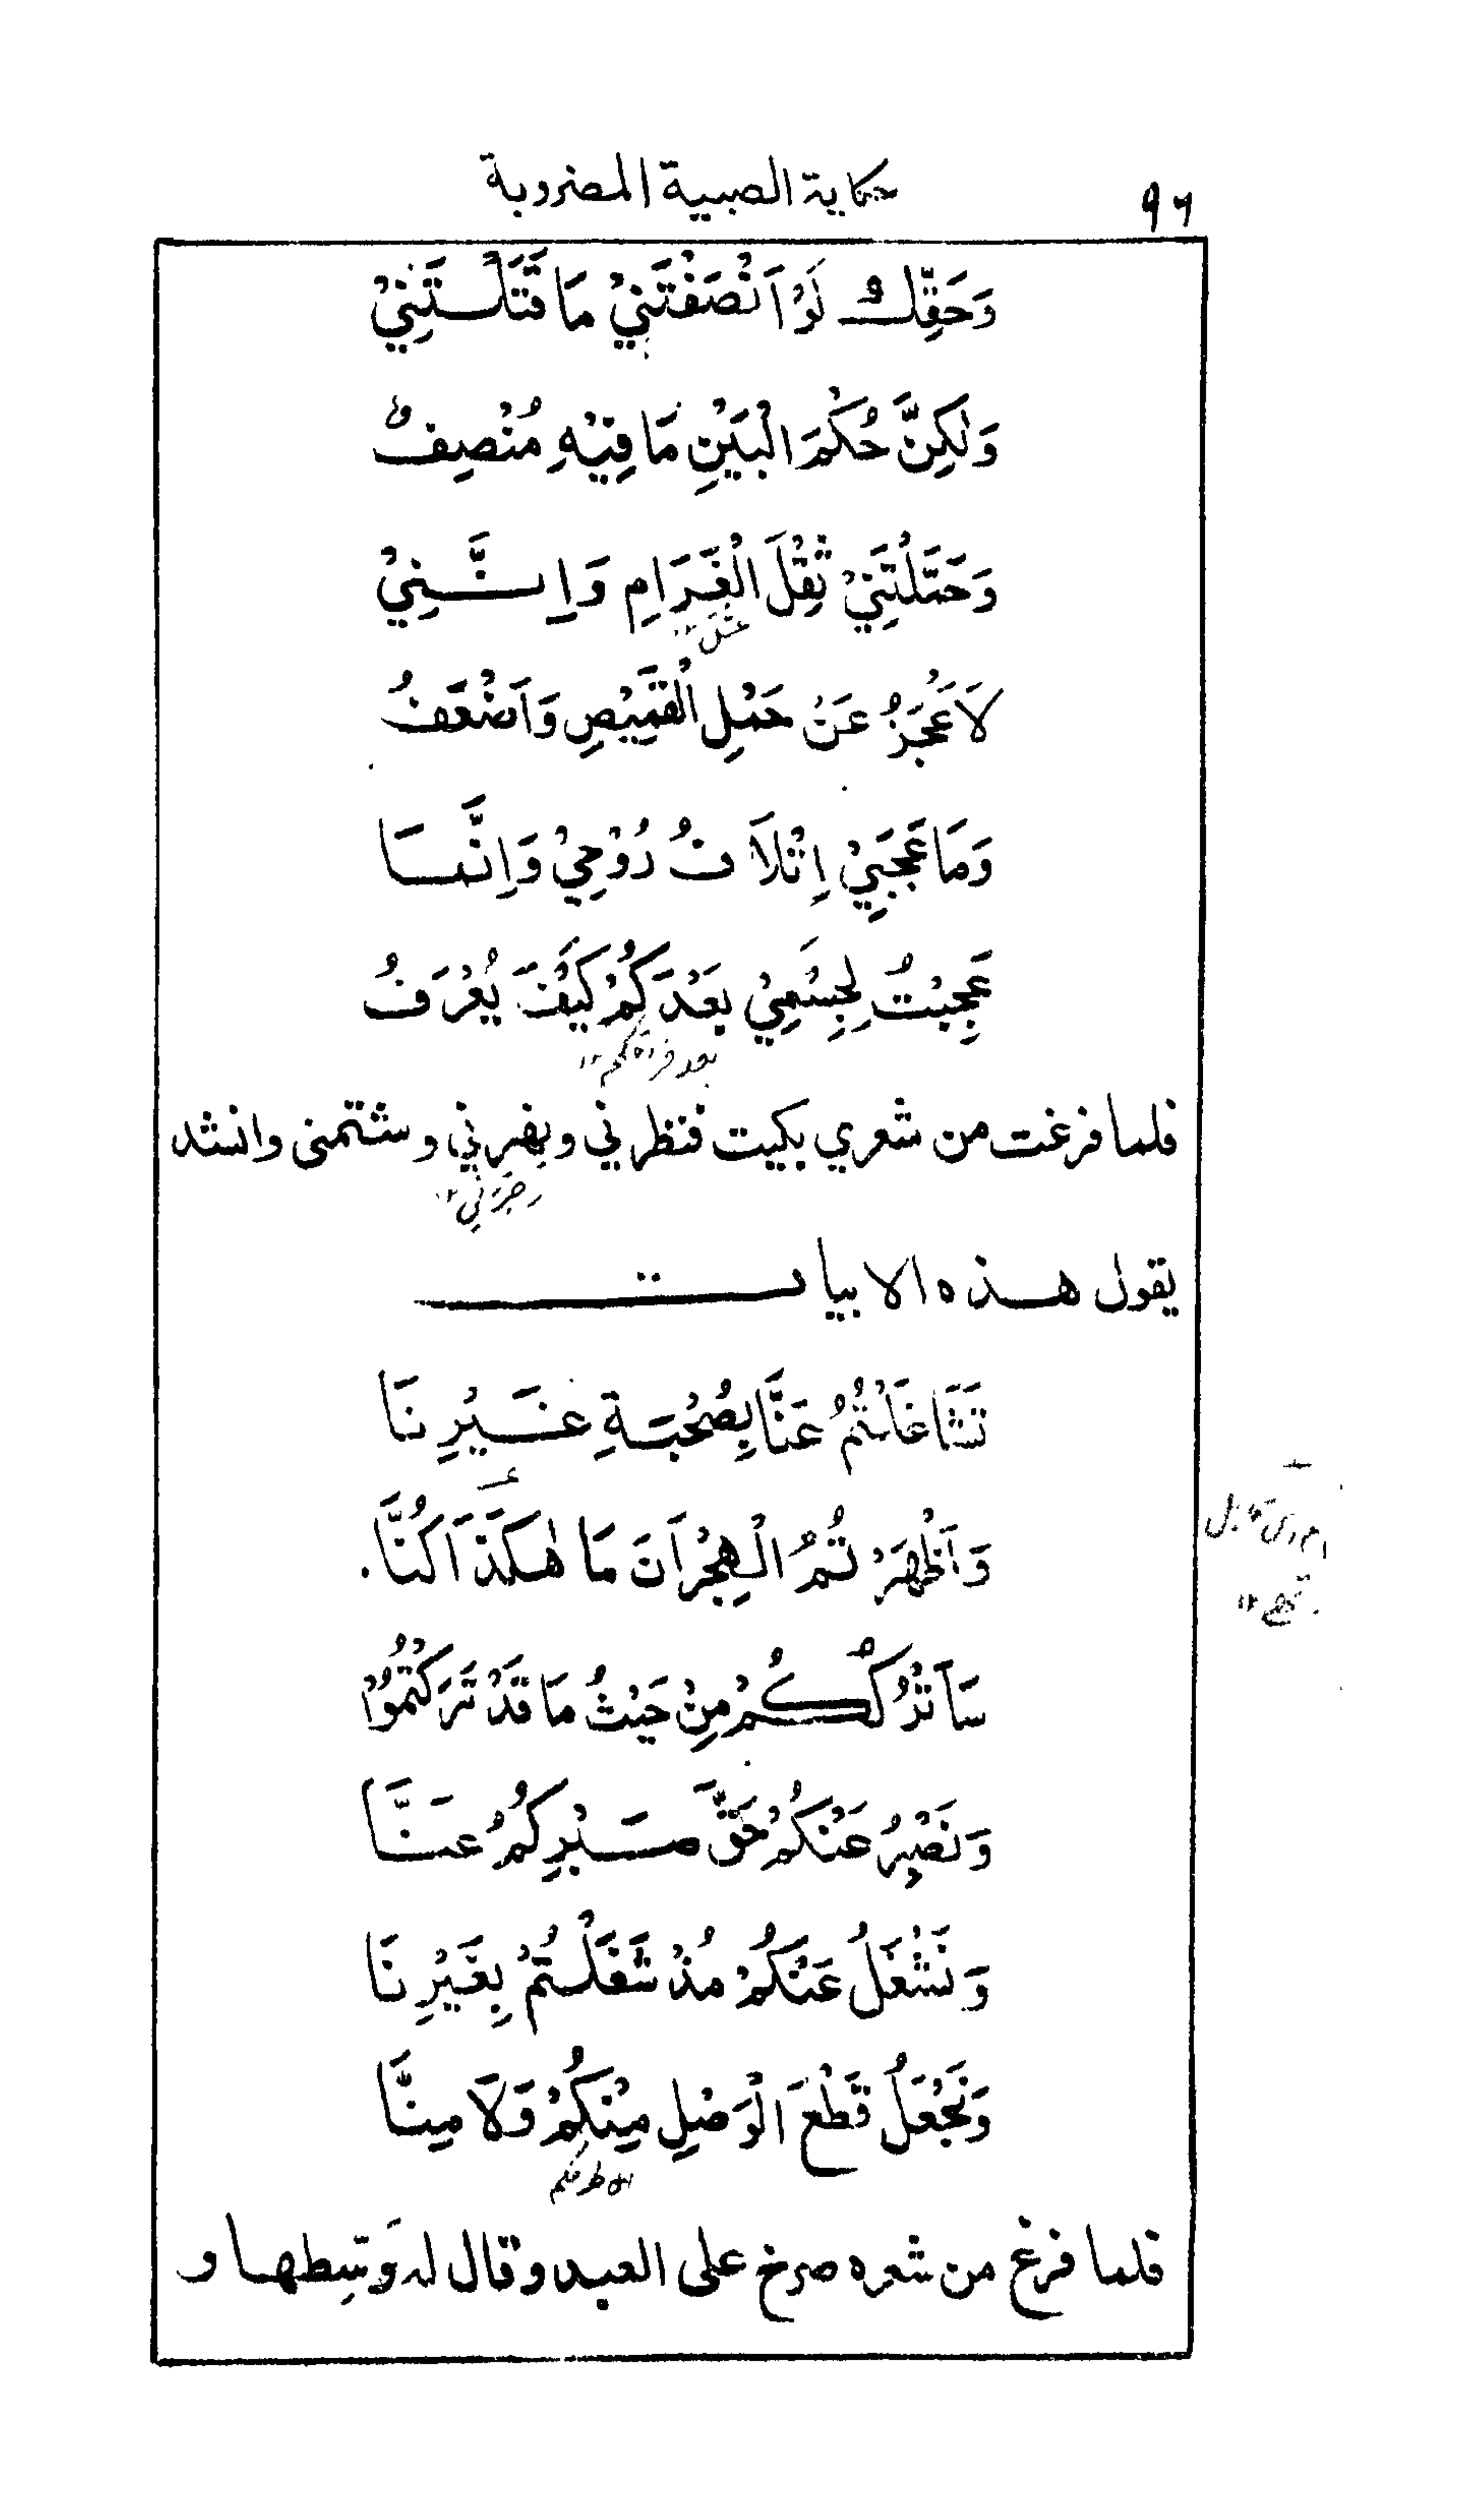 ٩٦ حكاية الصبية المضروبة
وَحَقِّكَ لَوْ اَنْصَفْتَنِيْ مَا قَتَلْتَنِيْ
وَلٰكِنَّ حُكْمَ الْبَيْنِ مَا فِيْهِ مُنْصِفٌ
وَحَمَّلْتَنِيْ ثِقْلَ الْغَرَامِ وَاِنَّنِيْ
لَاَعْجَزُ عَنْ حَمْلِ الْقَمِيْصِ وَاَضْعَفُ
وَمَا عَجَبِيْ اِتْلَافُ رُوْحِيْ وَاِنَّمَا
عَجِبْتُ لِجِسْمِيْ بَعْدَكُمْ كَيْفَ يُعْرَفُ
فلما فرغت من شعري بكيت فنظرني وبغرني وشتمنى وانشد
يقول هذه الابيات
تَشَاغَلْتُمُ عَنَّا بِصُحْبَةِ غَيْرِنَا
وَاَظْهَرْتُمُ الْهِجْرَانَ مَا هٰكَذَا كُنَّا
سَاَتْرُكُكُمْ مِنْ حَيْثُ مَا قَدْ تَرَكْتُمُوْا
وَنَصْبِرُ عَنْكُمْ حَقَّ صَبْرِكُمُ عَنَّا
وَنَشْغَلُ عَنْكُمْ مُذْ شَغَلْتُمْ بِغَيْرِنَا
وَنَجْعَلُ قَطْعَ الْوَصْلِ مِنْكُمْ وَلَا مِنَّا
فلما فرغ من شعره صرخ على العبد وقال له وَسِطها و